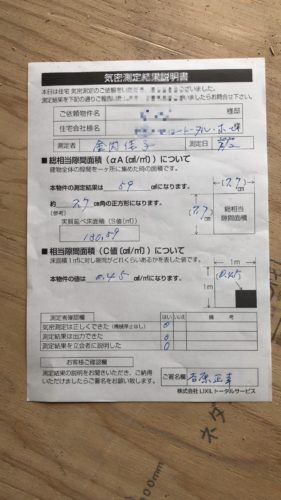 気密測定結果説明書
本日は住宅 気密測定のご依頼をいただき、
測定結果を下記の通りご報告いたします。
ご依頼物件名 様邸
住宅会社様名 トータル・ホーム
測定者 測定日
■総相当隙間面積(αA(c㎡/㎡))について
建物全体の隙間を一ヶ所に集めた時の面積です。
本物件の測定結果は 59 c㎡になります。
約 7.7 cm角の正方形になります。
(参考)
実質延べ床面積(S値(㎡))
130.59
7.7
cm
7.7 cm
総相当
隙間面積
■相当隙間面積(C値(c㎡/㎡))について
床面積1㎡に対し隙間がどれくらいあるかを表した値です。
本物件の値は 0.45 c㎡/㎡になります。
1m
1m
0.45
測定者確認欄 はい いいえ 備考
気密測定は正しくできた(機械停止なし) 0
測定結果は出力できた 0
測定結果を立会者に説明した 0
お客様ご確認欄
測定結果の説明をお聞きいただき、ご納得
いただけましたらご署名をお願い致します。
ご署名欄
株式会社 LIXIL トータルサービス